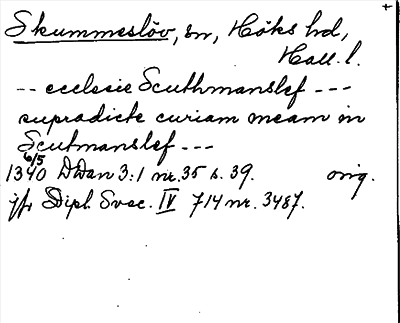 Skummeslöv, sn, Höks hd,
Hall. l.
-- ecclesie Scuthmanslef ---
supradicte curiam meam in
Scutmanslef ---
6/5
1340 DDan 3:1 nr. 35 s. 39. orig.
jfr Dipl. Svec. IV 714 nr. 3487.